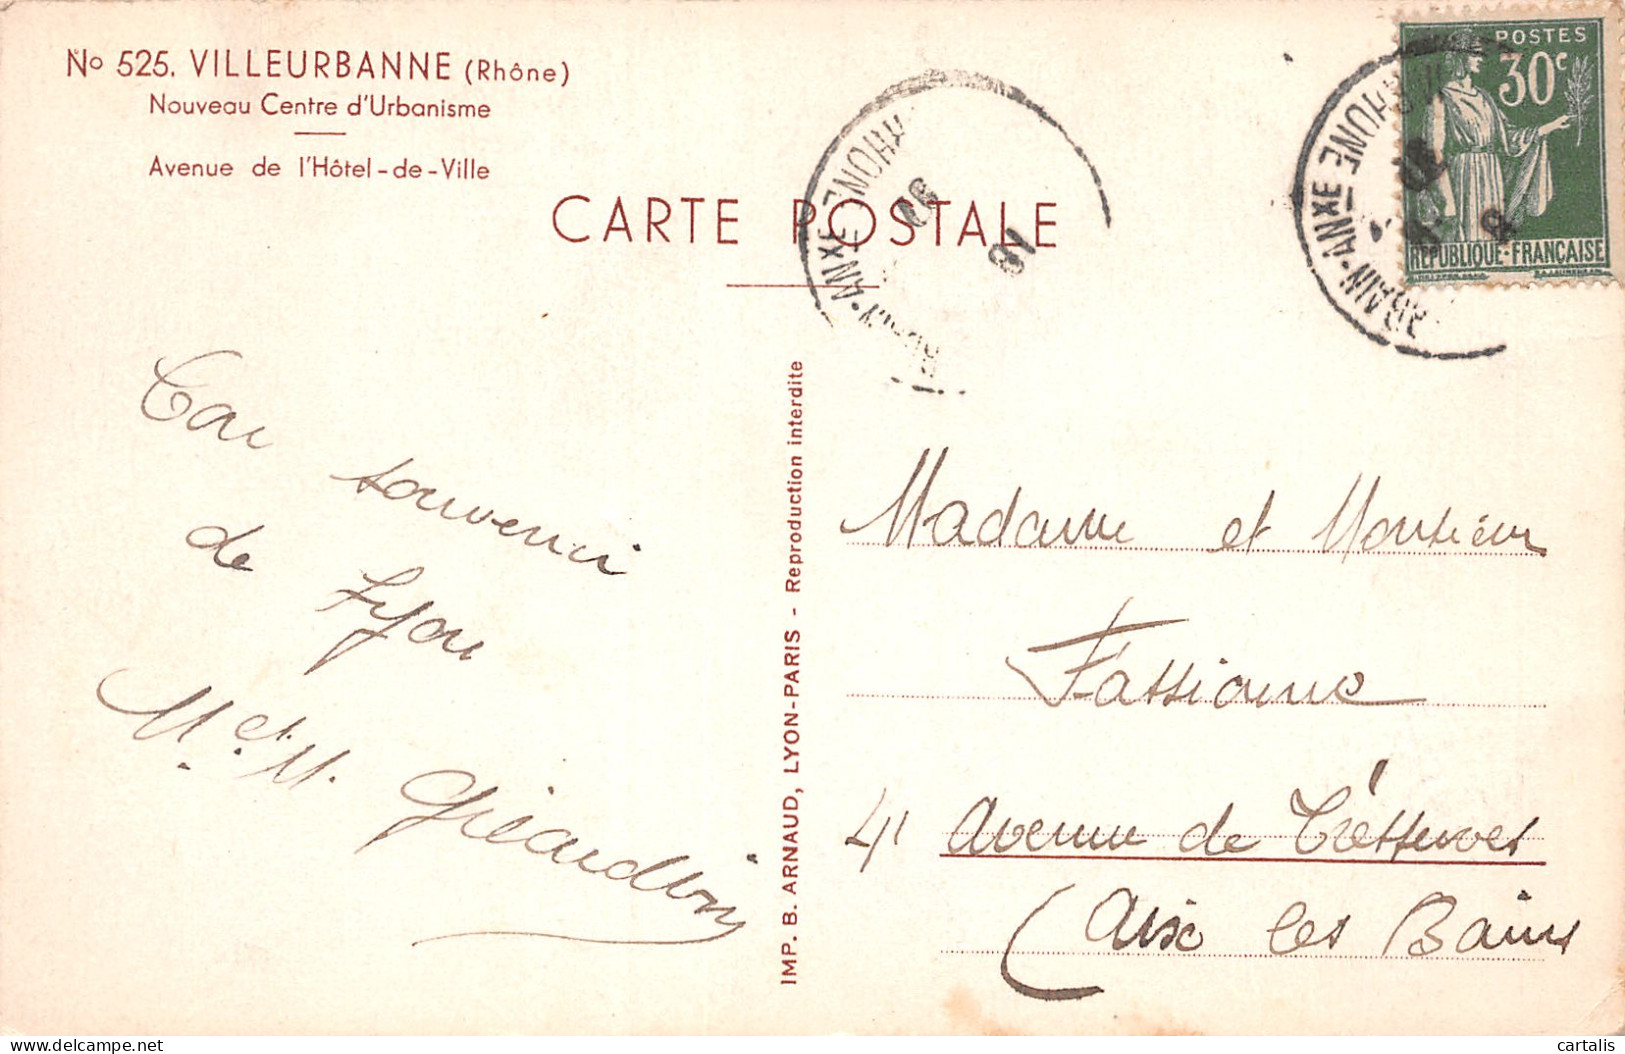 No 525. VILLEURBANNE (Rhône)
Nouveau Centre d'Urbanisme
Avenue de l'Hôtel-de-Ville
CARTE POSTALE
POSTES
30c
REPUBLIQUE-FRANÇAISE
ANXE RHONE
16
ANXE RHONE
IMP. B. ARNAUD, LYON-PARIS - Reproduction interdite
souvenir
de
Lyon
M. et M.
Madame et Monsieur
41 Avenue de Tresserves
(Aix les Bains
cartalis
delcampe.net